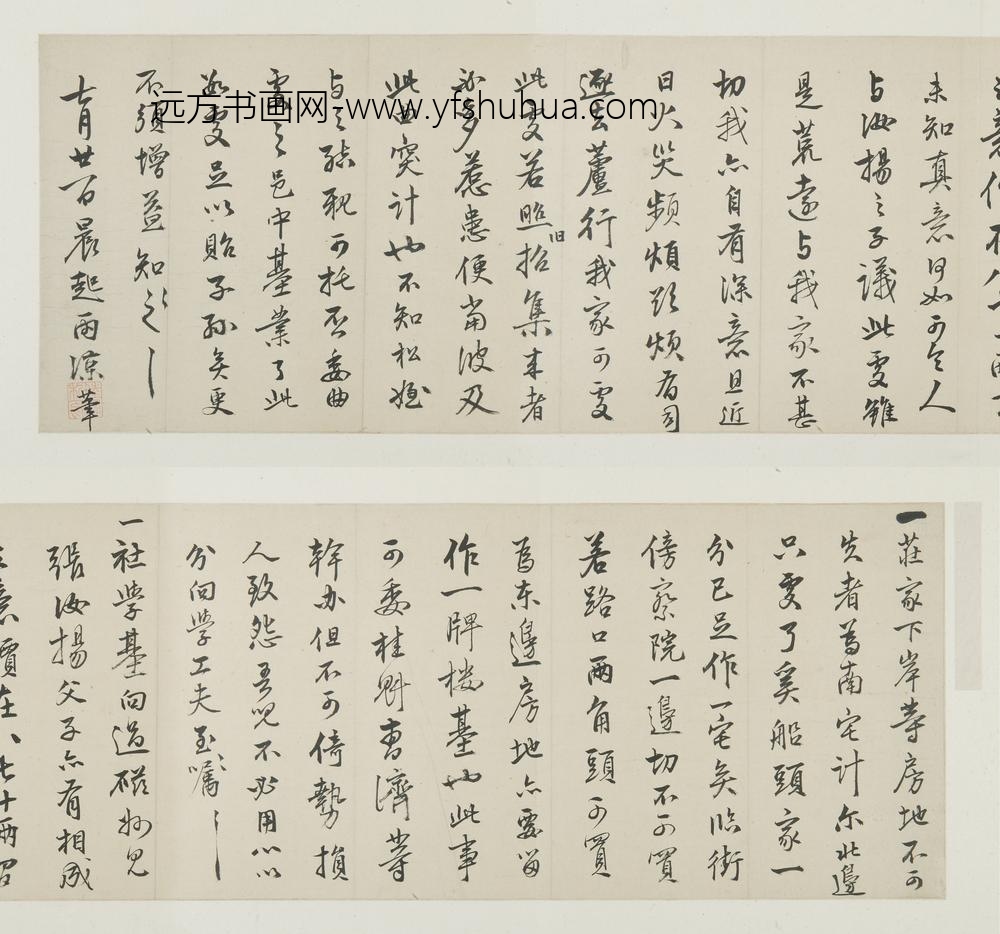 一莊家下岸等房地不可
失者為南宅計尔北邊
只要了奚船頭家一
分已足作一宅矣臨街
傍察院一邊切不可買
若路口兩角頭可買
為東邊房地亦要留
作一牌楼基也此事
可委桂魁曹濟等
幹办但不可倚勢損
人致怨吾児不必用心以
分向學工夫至嘱〻〻
一社學基向過磁州兒
張汝揚父子亦有相成
意價在七十兩
未知真意何如可令人
与汝揚之子議此處雖
是荒遠与我家不甚
切我亦自有深意且近
日火災頻煩頻煩有司
逐去蘆行我家可要
此處若照旧招集来者
必多惹患便當波及
此曲突計也不知松姪
与之孫親可托否委曲
處之邑中基業了此
數處足以貽子孫矣更
不須增益知之〻〻
七月廿一日晨起雨涼筆
远方书画网-www.yfshuhua.com